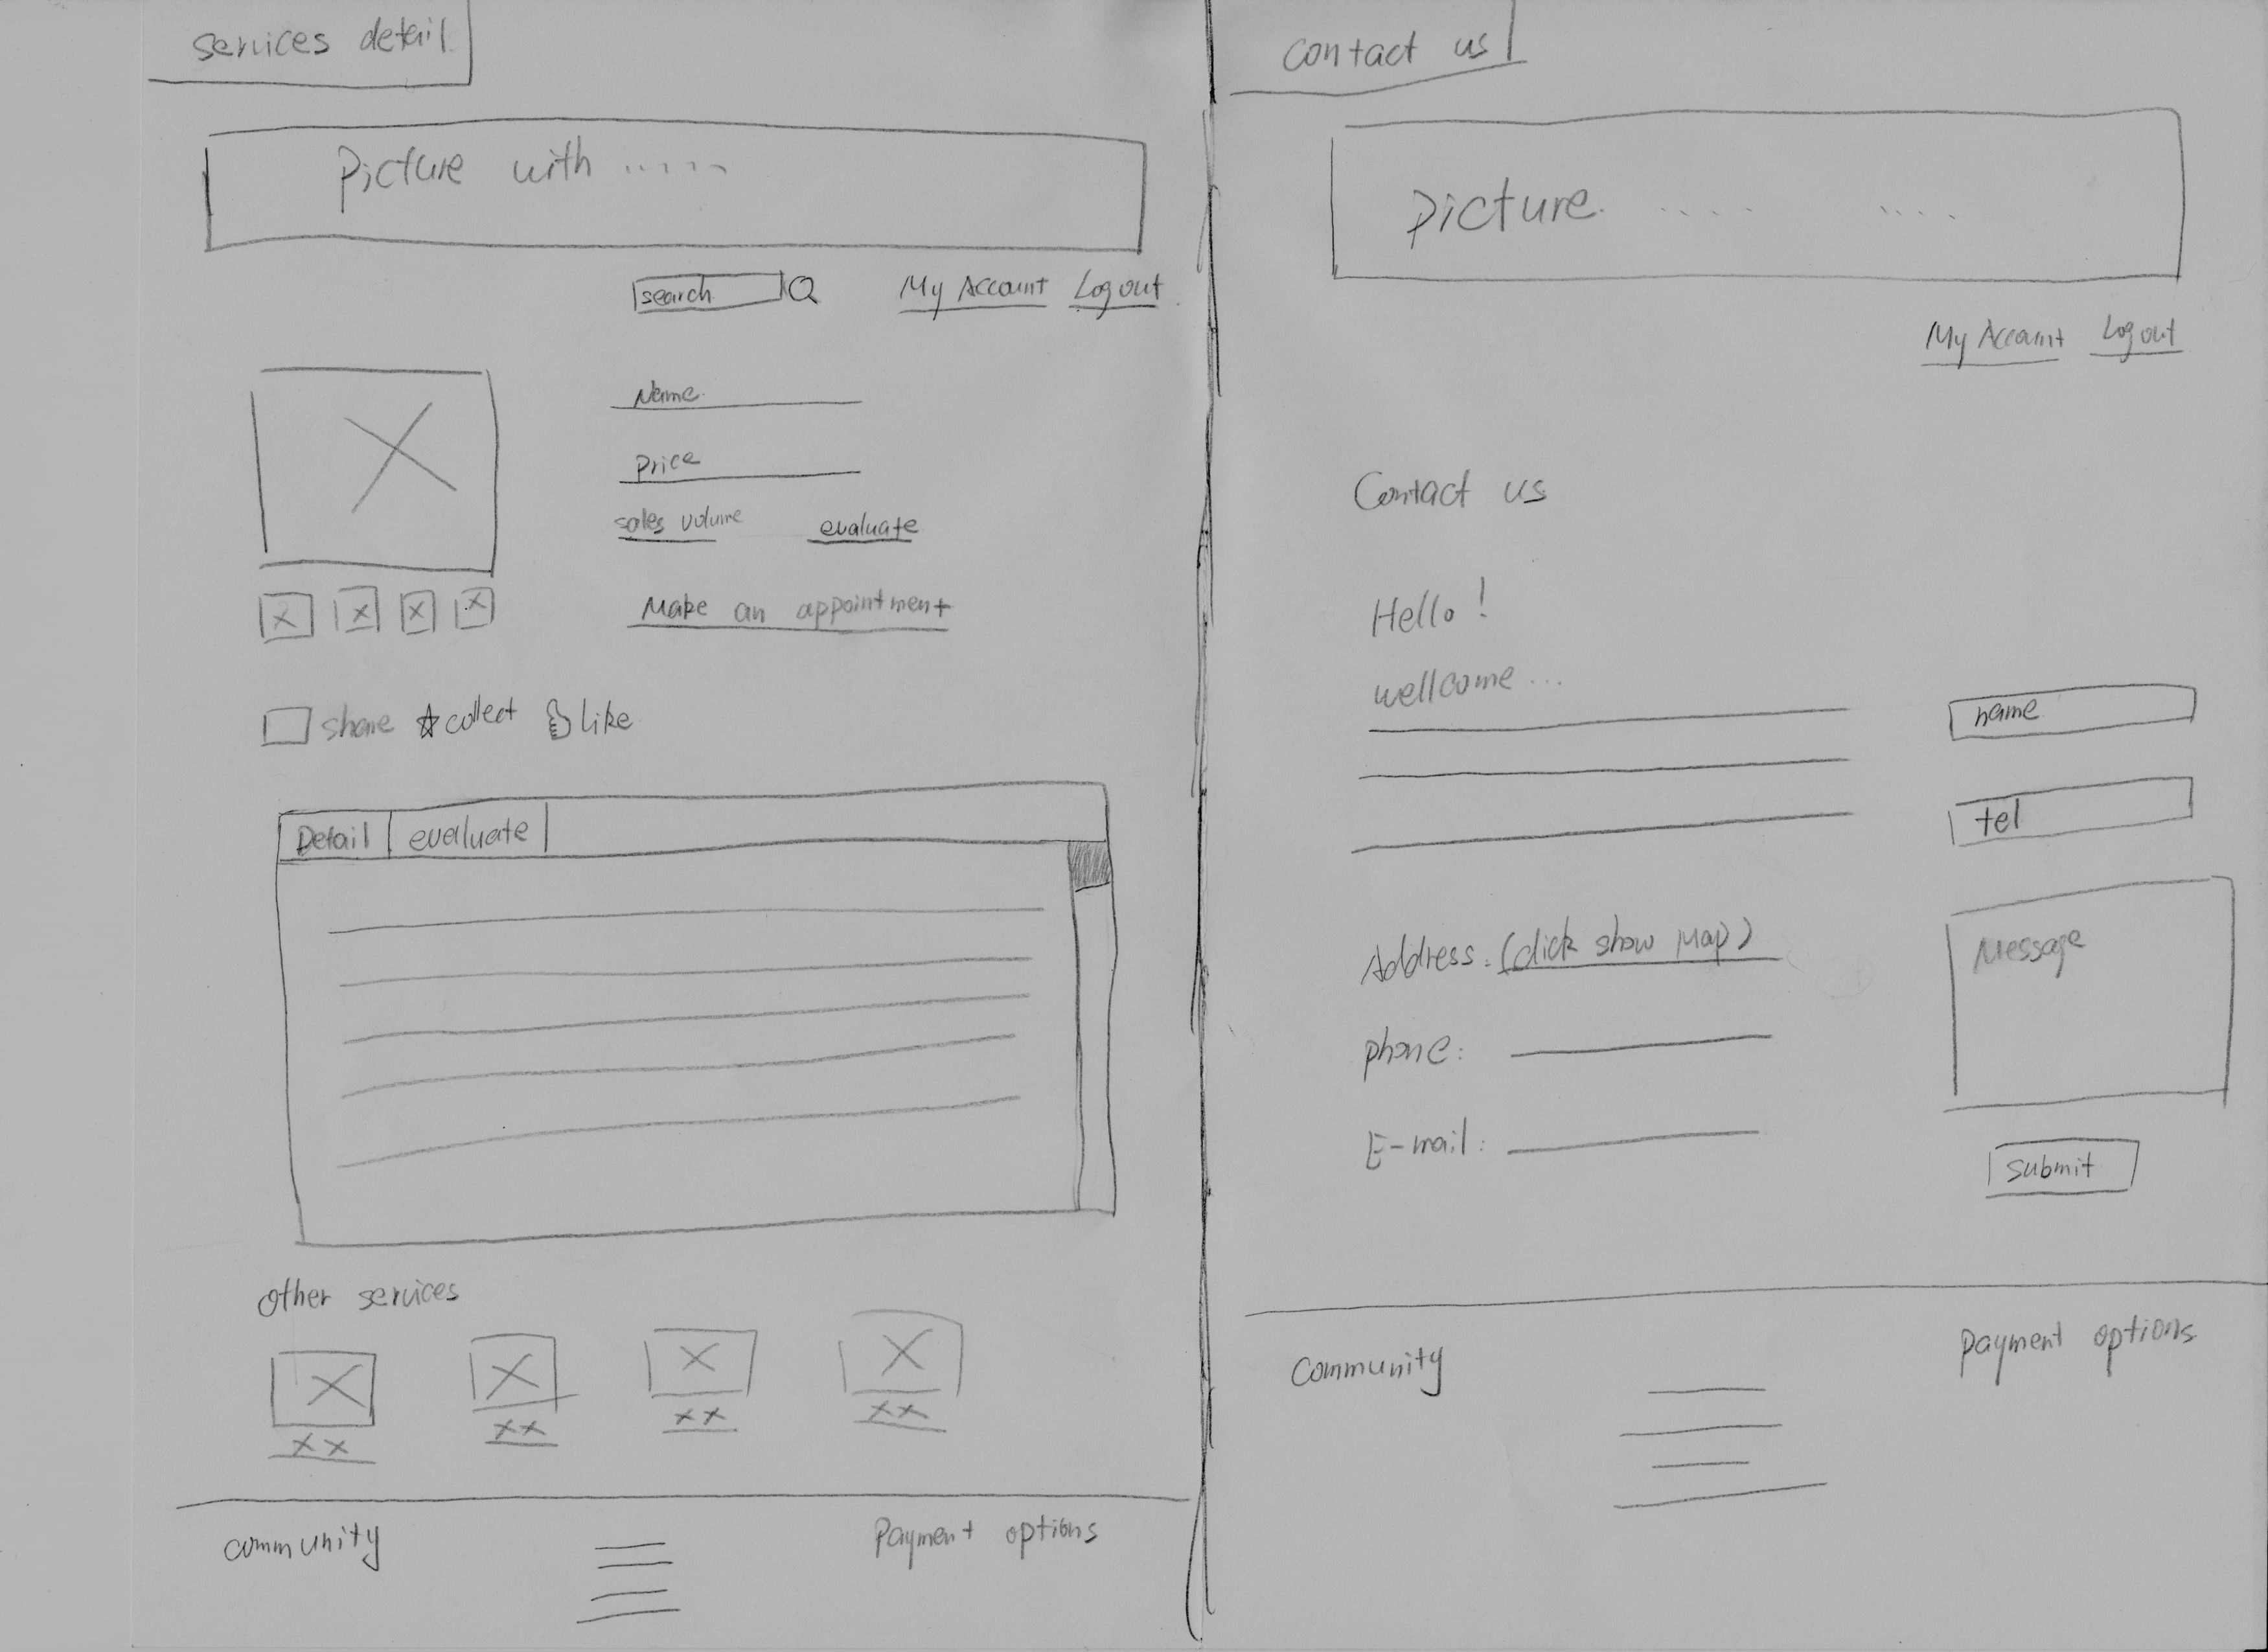 services detail
Picture with .....
search
My Account Logout
Name
Price
sales volume evaluate
Make an appointment
share collect like
Detail evaluate
other services
xx xx xx xx
community
Payment options
contact us
picture. .... ....
My Account Logout
Contact us
Hello!
wellcome...
name
tel
Address: (click show Map)
Message
phone:
E-mail:
submit
community
payment options